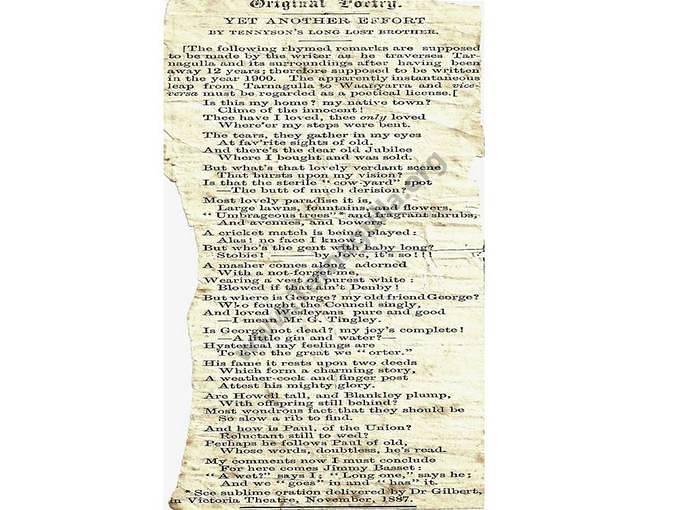 Original Poetry.
YET ANOTHER EFFORT
BY TENNYSON'S LONG LOST BROTHER.
[The following rhymed remarks are supposed
to be made by the writer as he traverses Tar-
nagulla and its surroundings after having been
away 12 years; therefore supposed to be written
in the year 1900. The apparently instantaneous
leap from Tarnagulla to Waanyarra and vice-
versa must be regarded as a poetical license.[
Is this my home? my native town?
Clime of the innocent!
Thee have I loved, thee only loved
Where'er my steps were bent.
The tears, they gather in my eyes
At fav'rite sights of old.
And there's the dear old Jubilee
Where I bought and was sold.
But what's that lovely verdant scene
That bursts upon my vision?
Is that the sterile "cow-yard" spot
—The butt of much derision?
Most lovely paradise it is,
Large lawns, fountains, and flowers,
"Umbrageous trees"* and fragrant shrubs,
And avenues, and bowers.
A cricket match is being played:
Alas! no face I know!
But who's the gent with baby long?
'Stobie! ——by Jove, it's so!!!
A masher comes along adorned
With a not-forget-me,
Wearing a vest of purest white:
Blowed if that ain't Denby!
But where is George? my old friend George?
Who fought the Council singly,
And loved Wesleyans pure and good
—I mean Mr G. Tingley.
Is George not dead? my joy's complete!
—A little gin and water?—
Hysterical my feelings are
To love the great we "orter."
His fame it rests upon two deeds
Which form a charming story,
A weather-cock and finger post
Attest his mighty glory.
Are Howell tall, and Blankley plump,
With offspring still behind?
Most wondrous fact that they should be
So slow a rib to find.
And how is Paul, of the Union?
Reluctant still to wed?
Perhaps he follows Paul of old,
Whose words, doubtless, he's read.
My comments now I must conclude
For here comes Jimmy Basset:
"A wet?" says I; "Long one," says he;
And we "goes" in and "has" it.
* See sublime oration delivered by Dr Gilbert,
in Victoria Theatre, November, 1887.